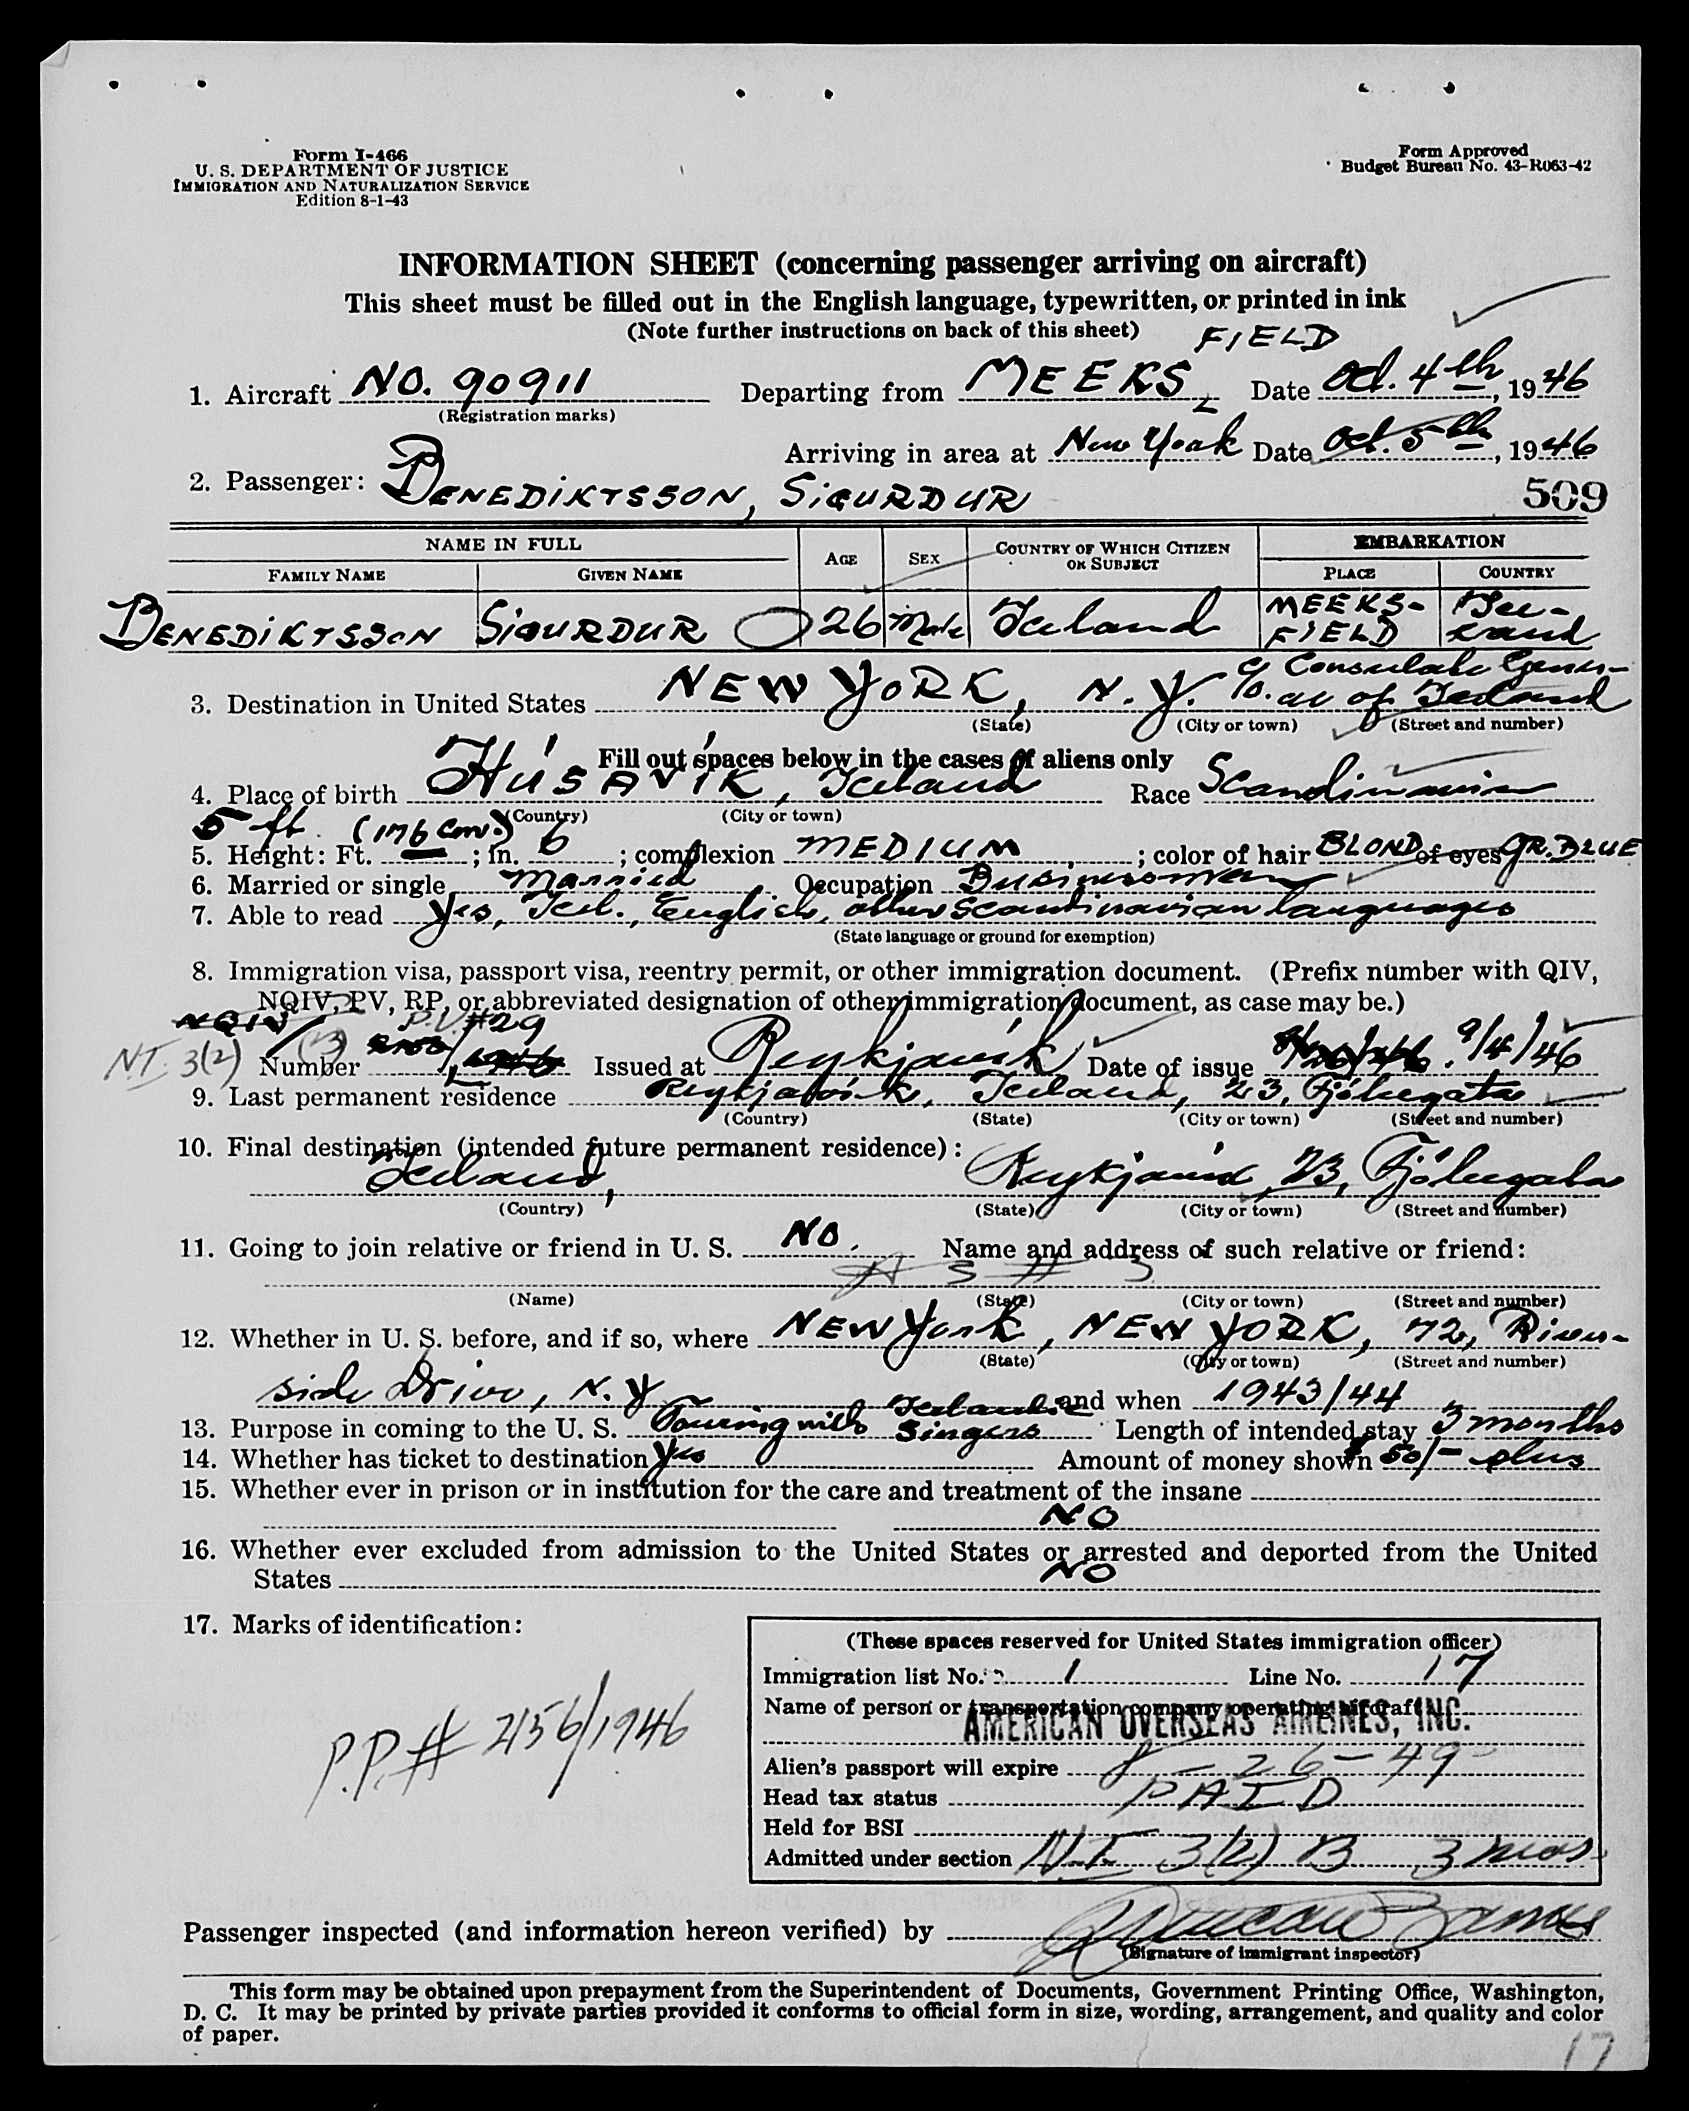 Form I-466
U. S. DEPARTMENT OF JUSTICE
IMMIGRATION AND NATURALIZATION SERVICE
Edition 8-1-43
Form Approved
Budget Bureau No. 43-R063-42
INFORMATION SHEET (concerning passenger arriving on aircraft)
This sheet must be filled out in the English language, typewritten, or printed in ink
(Note further instructions on back of this sheet)
FIELD
1. Aircraft NO. 90911 Departing from MEEKS Date Oct. 4th, 1946
(Registration marks)
Arriving in area at New York Date Oct. 5th, 1946
2. Passenger: BENEDIKTSSON, SIGURDUR
509
NAME IN FULL AGE SEX COUNTRY OF WHICH CITIZEN OR SUBJECT EMBARKATION
FAMILY NAME GIVEN NAME PLACE COUNTRY
BENEDIKTSSON SIGURDUR 26 Male Iceland MEEKS-FIELD Ice-land
c/o Consulate Gener-
3. Destination in United States NEW YORK, N.Y. al of Iceland
(State) (City or town) (Street and number)
Fill out spaces below in the cases of aliens only
4. Place of birth HÚSAVÍK, Iceland Race Scandinavian
(Country) (City or town)
5 ft. (176 cm.)
5. Height: Ft. ; in. 6 ; complexion MEDIUM ; color of hair BLOND of eyes GR. BLUE
6. Married or single Married Occupation Businessman
7. Able to read Yes, Icel., English, other Scandinavian languages
(State language or ground for exemption)
8. Immigration visa, passport visa, reentry permit, or other immigration document. (Prefix number with QIV,
NQIV, PV, RP, or abbreviated designation of other immigration document, as case may be.)
NQIV P.V. #29
N.I. 3(2) (3) Number Issued at Reykjavík Date of issue 9/4/46
9. Last permanent residence Reykjavík, Iceland, 23, Fjólugata
(Country) (State) (City or town) (Street and number)
10. Final destination (intended future permanent residence):
Iceland, Reykjavík, 23, Fjólugata
(Country) (State) (City or town) (Street and number)
11. Going to join relative or friend in U. S. NO. Name and address of such relative or friend:
A S # 3
(Name) (State) (City or town) (Street and number)
12. Whether in U. S. before, and if so, where NEW York, NEW YORK, 72, River-
(State) (City or town) (Street and number)
side Drive, N.Y and when 1943/44
13. Purpose in coming to the U. S. Touring with Icelandic Singers Length of intended stay 3 months
14. Whether has ticket to destination Yes Amount of money shown $ 50/- plus
15. Whether ever in prison or in institution for the care and treatment of the insane
NO
16. Whether ever excluded from admission to the United States or arrested and deported from the United
States NO
17. Marks of identification:
P.P. # 2156/1946
(These spaces reserved for United States immigration officer)
Immigration list No. 1 Line No. 17
Name of person or transportation company operating aircraft
AMERICAN OVERSEAS AIRLINES, INC.
Alien's passport will expire 8-26-49
Head tax status PAID
Held for BSI
Admitted under section N.I. 3(2) B 3 mos.
Passenger inspected (and information hereon verified) by
(Signature of immigrant inspector)
This form may be obtained upon prepayment from the Superintendent of Documents, Government Printing Office, Washington,
D. C. It may be printed by private parties provided it conforms to official form in size, wording, arrangement, and quality and color
of paper.
17